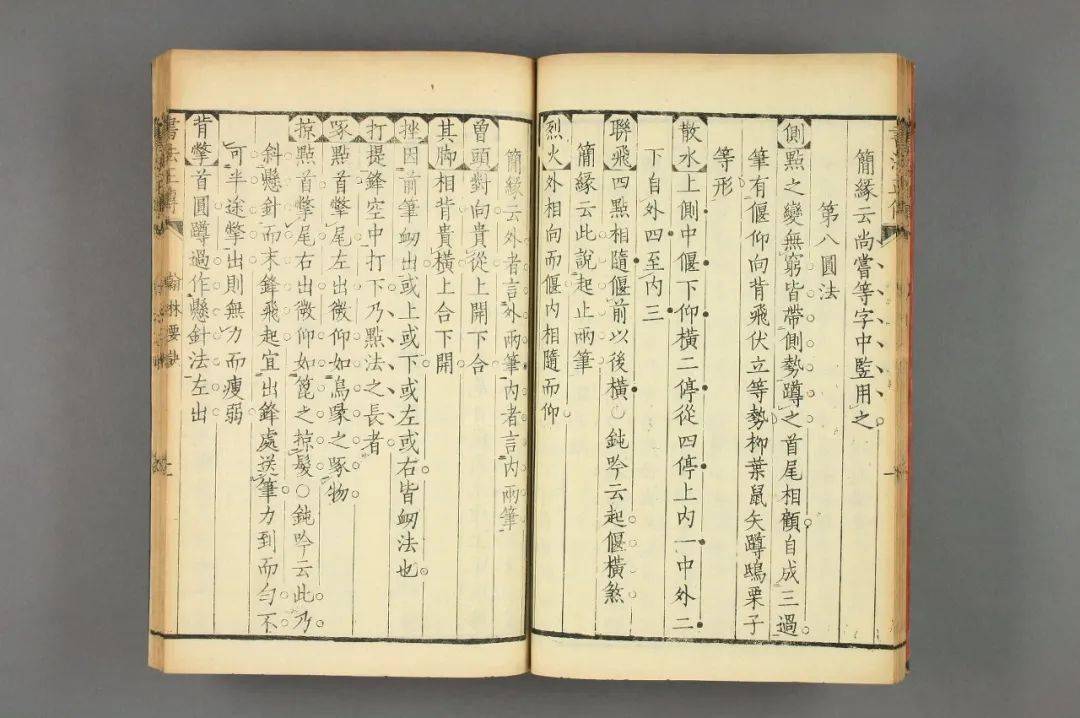 簡緣云尚嘗等字中監用之
第八圓法
側點之變無窮皆帶側勢蹲之首尾相顧自成三過
筆有偃仰向背飛伏立等勢柳葉鼠矢蹲鴟栗子
等形
散水上側中偃下仰橫二停從四停上内一中外二
下自外四至内三
聯飛四點相隨偃前以後橫○鈍吟云起偃橫煞
簡緣云此說起止兩筆
烈火外相向而偃内相隨而仰
簡緣云外者言外兩筆内者言内兩筆
曾頭對向貴從上開下合
其脚相背貴橫上合下開
挫因前筆衂出或上或下或左或右皆衂法也
打提鋒空中打下乃點法之長者
啄點首撆尾左出微仰如鳥喙之啄物
掠點首撆尾右出微仰如篦之掠髮○鈍吟云此乃
斜懸針而末鋒飛起宜出鋒處送筆力到而勻不
可半途撆出則無力而瘦弱
背撆首圓蹲過作懸針法左出
書法正傳
翰林要訣